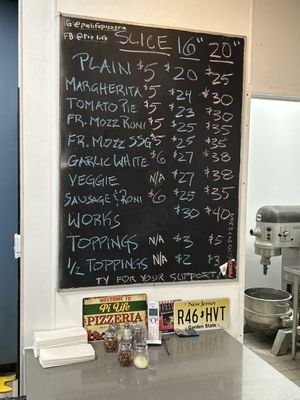 IG:@pielifepizzeria
FB:@Pie Life
SLICE 16" 20"
PLAIN $5 $20 $25
MARGHERITA $5 $24 $30
TOMATO PIE $5 $23 $30
FR. MOZZ RONI $5 $25 $35
FR. MOZZ SSG $5 $25 $35
GARLIC WHITE $6 $27 $38
VEGGIE N/A $27 $38
SAUSAGE & RONI $6 $25 $35
WORKS $30 $40
TOPPINGS N/A $3 $5
1/2 TOPPINGS N/A $2 $3
TY FOR YOUR SUPPORT!
WELCOME TO
Pi Life
PIZZERIA
New Jersey
R46 HVT
Garden State